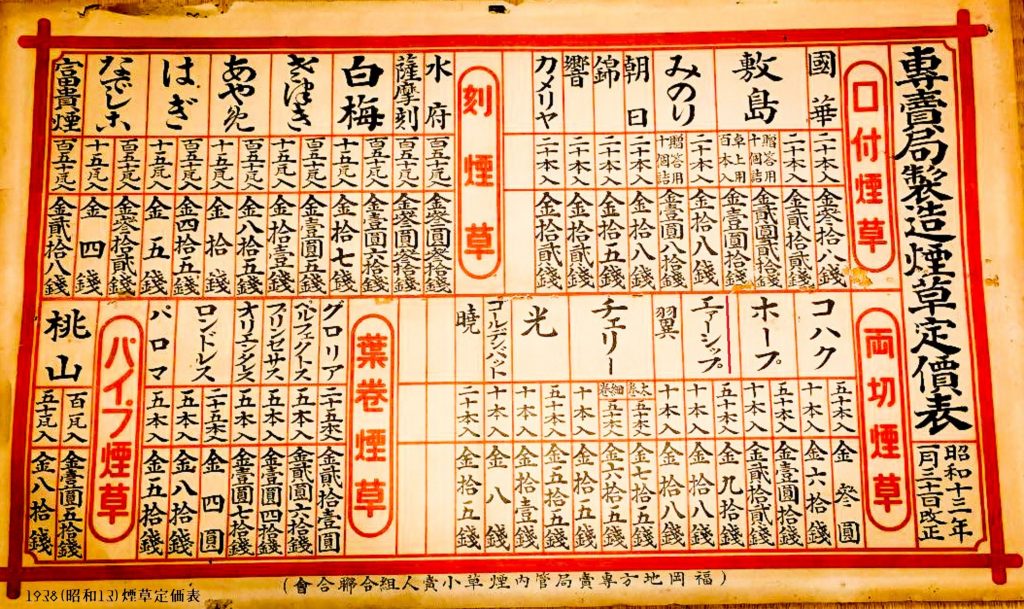 專賣局製造煙草定價表
昭和十三年
一月三十一日改正
口付煙草
國華 二十本入 金參拾八錢
敷島 二十本入 金貳拾貳錢
贈答用十個詰 金貳圓貳拾錢
卓上用百本入 金壹圓拾錢
みのり 二十本入 金拾八錢
贈答用十個詰 金壹圓八拾錢
朝日 二十本入 金拾八錢
錦 二十本入 金拾五錢
響 二十本入 金拾貳錢
カメリヤ 二十本入 金拾貳錢
刻煙草
水府 百五十瓦入 金參圓參拾錢
薩摩刻 百五十瓦入 金參圓參拾錢
白梅 百五十瓦入 金壹圓六拾錢
十五瓦入 金拾七錢
さつき 百五十瓦入 金壹圓五錢
十五瓦入 金拾壹錢
あやめ 百五十瓦入 金八拾五錢
十五瓦入 金拾錢
はぎ 百五十瓦入 金四拾五錢
十五瓦入 金五錢
なでしこ 百五十瓦入 金參拾貳錢
十五瓦入 金四錢
富貴煙 百五十瓦入 金貳拾八錢
両切煙草
コハク 五十本入 金參圓
十本入 金六拾錢
ホープ 五十本入 金壹圓拾錢
十本入 金貳拾貳錢
エアーシップ 五十本入 金九拾錢
十本入 金拾八錢
翼 十本入 金拾八錢
チェリー 太巻五十本入 金七拾五錢
細巻五十本入 金六拾五錢
十本入 金拾五錢
光 五十本入 金五拾五錢
十本入 金拾壹錢
ゴールデンバット 十本入 金八錢
暁 二十本入 金拾五錢
葉巻煙草
グロリア 二十五本入 金貳拾壹圓
ペルフェクトス 五本入 金貳圓六拾錢
プリンセサス 五本入 金壹圓四拾錢
オリエンタレス 五本入 金壹圓七拾錢
ロンドレス 二十五本入 金四圓
五本入 金八拾錢
パロマ 五本入 金五拾錢
パイプ煙草
桃山 百瓦入 金壹圓五拾錢
五十瓦入 金八拾錢
(福岡地方專賣局管内煙草小賣人組合聯合會)
1938(昭和13)煙草定価表